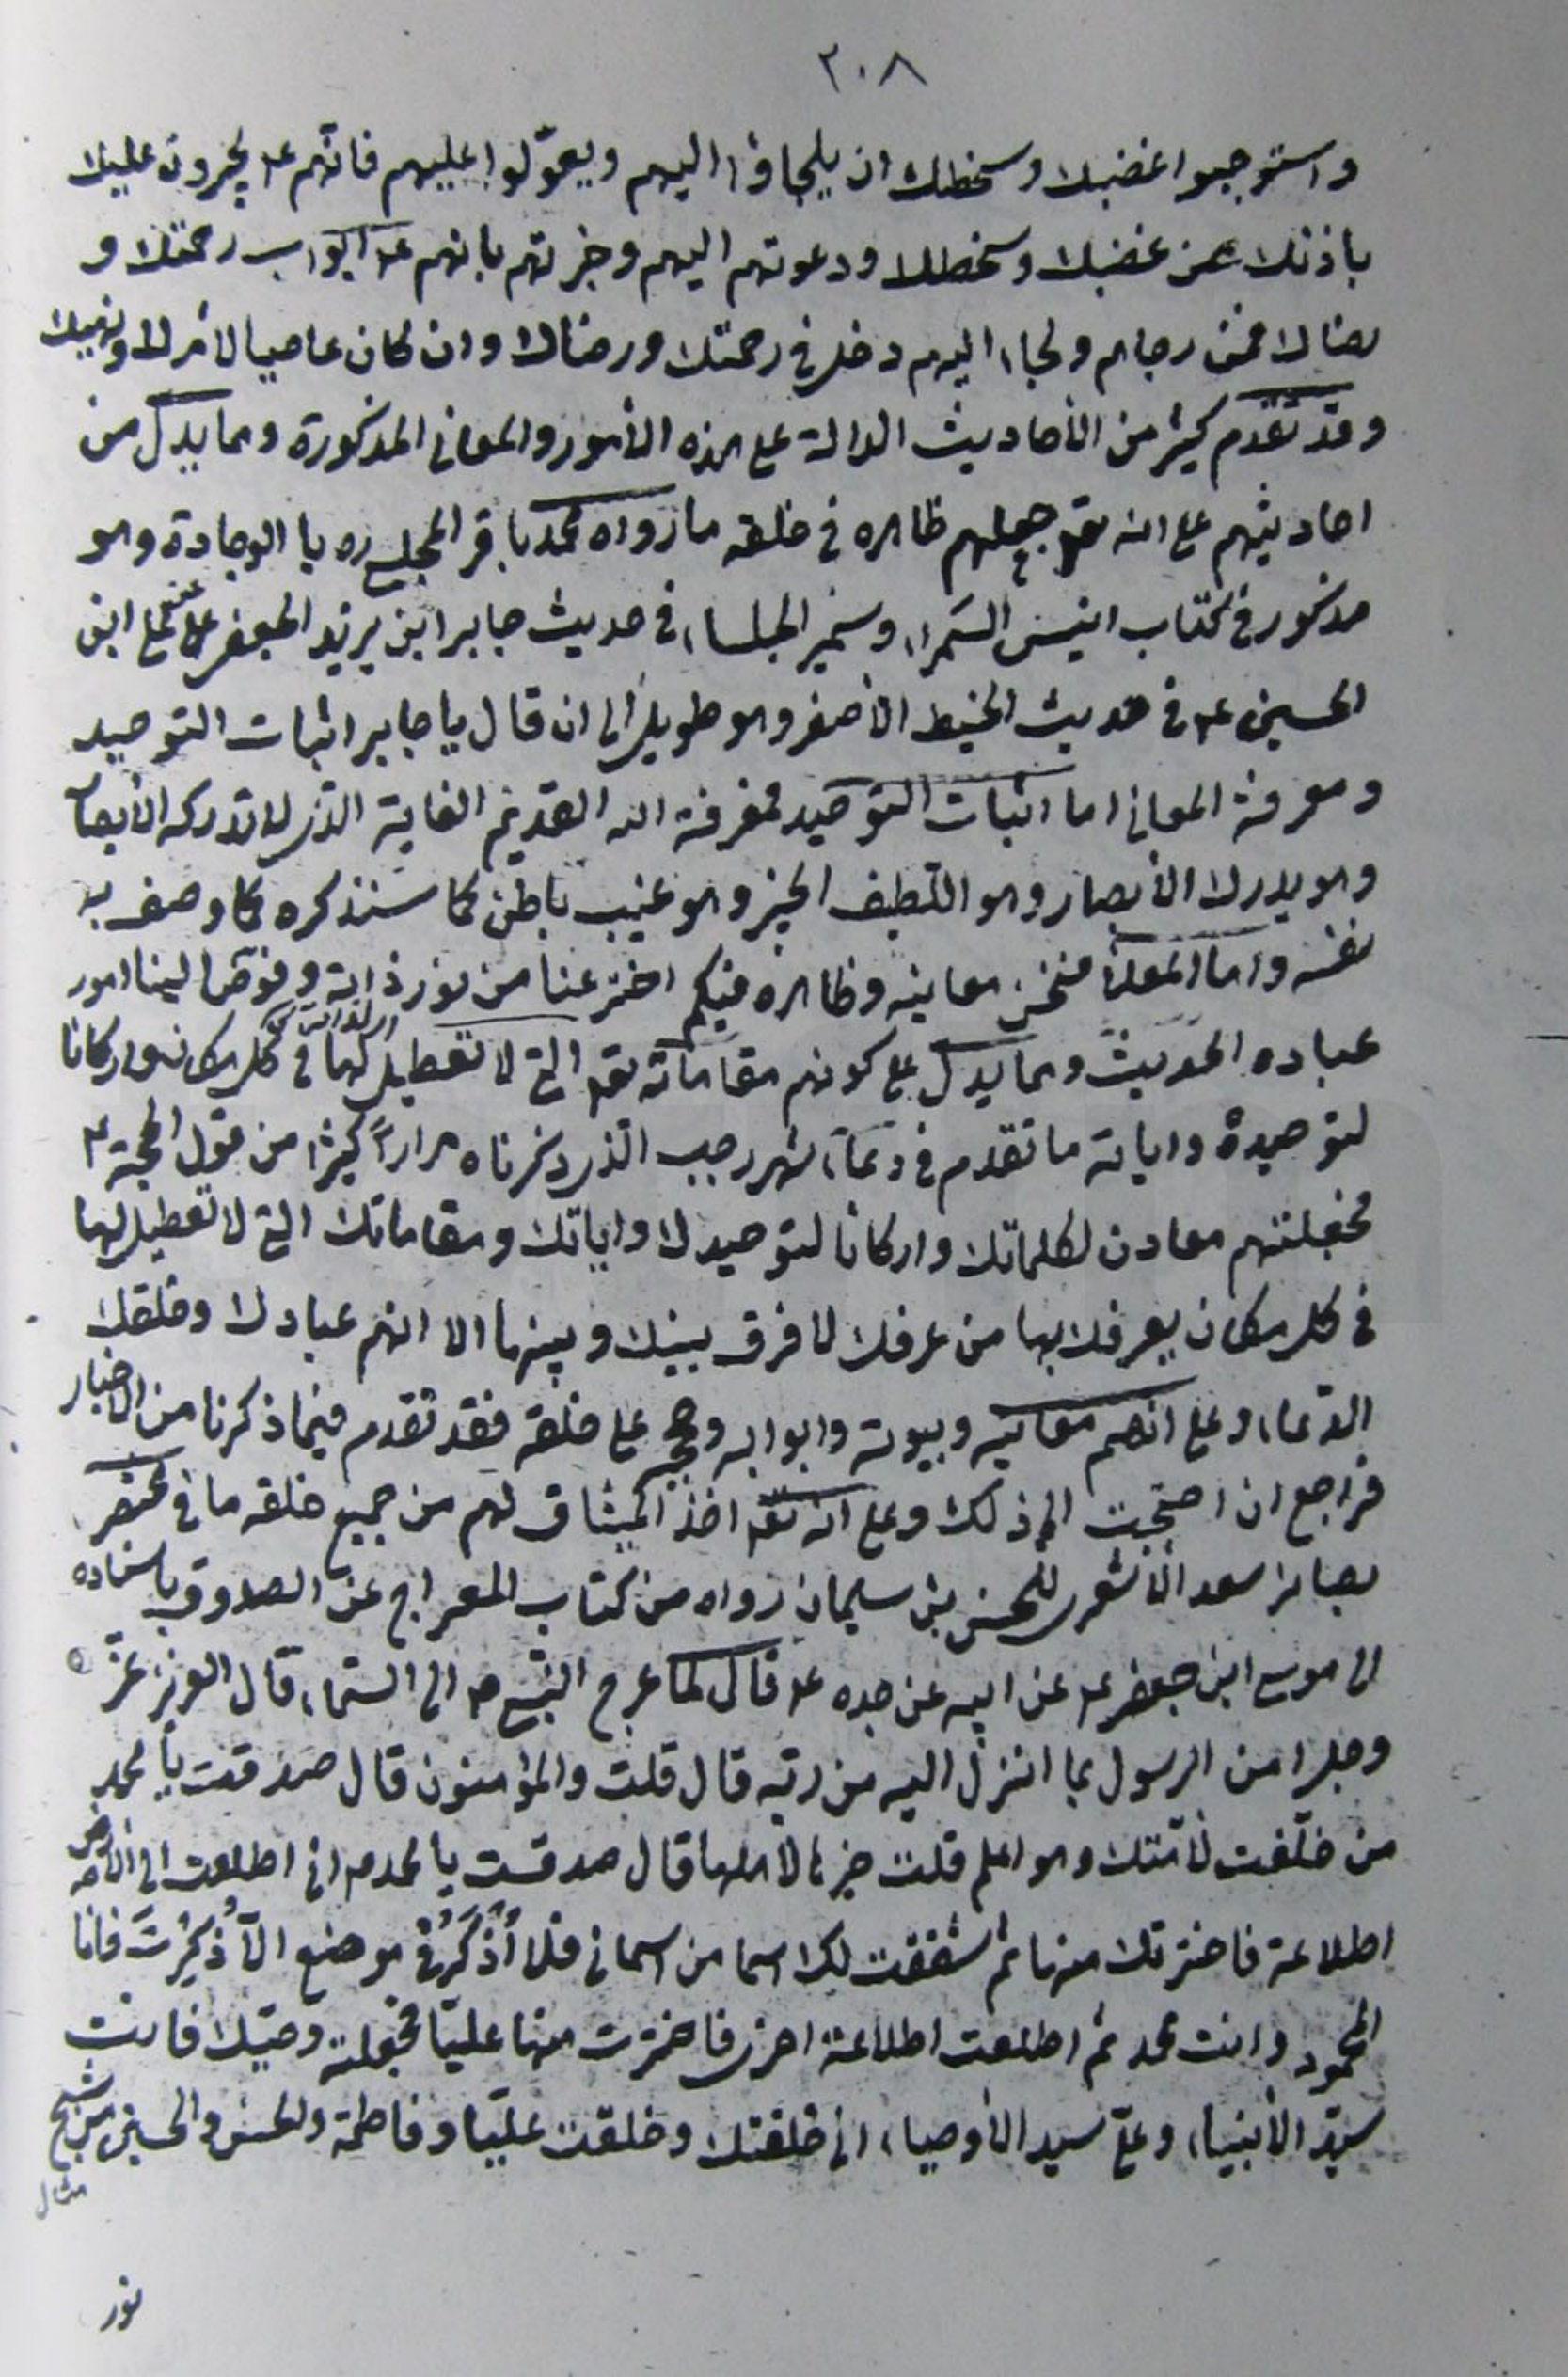 ٢٠٨
واستوجبوا غضبك وسخطك ان يلجاؤا اليهم ويعوّلوا عليهم فانّهم عم يجيرون عليك
باذنك من غضبك وسخطك ودعوتهم اليهم وخبرتهم بانهم عم ابواب رحمتك و
رضاك فمن رجاهم ولجاء اليهم دخل في رحمتك ورضاك وان كان عاصيا لامرك ونهيك
وقد تقدم كثير من الأحاديث الدالة على هذه الأمور والمعاني المذكورة ومما يدل من
احاديثهم على انه تعه جعلهم ظاهره في خلقه ما رواه محمد باقر المجلسي ره با الوجادة وهو
مذكور في كتاب انيس السمراء وسمير الجلساء في حديث جابر ابن يزيد الجعفي عن علي ابن
الحسين عم في حديث الخيط الأصفر وهو طويل الى ان قال يا جابر اثبات التوحيد
ومعرفة المعاني اما اثبات التوحيد فمعرفة الله القديم الغاية الذي لا تدركه الأبصار
وهو يدرك الأبصار وهو اللّطيف الخبير وهو غيب باطن كما سنذكره كما وصف به
نفسه واما المعاني فنحن معانيه وظاهره فيكم اخترعنا من نور ذاته وفوض الينا امور
عباده الحديث ومما يدل على كونهم مقاماته تعه التي لا تعطيل لها في كل مكان واركانا
لتوحيده واياته ما تقدم في دعاء شهر رجب الّذي ذكرناه مراراً كثيرا من قول الحجة عم
فجعلتهم معادن لكلماتك واركانا لتوحيدك واياتك ومقاماتك التي لا تعطيل لها
في كل مكان يعرفك بها من عرفك لا فرق بينك وبينها الا انهم عبادك وخلقك
الدّعاء وعلى انهم معانيه وبيوته وابوابه وحججه على خلقه فقد تقدم فيما ذكرنا من الاخبار
فراجع ان احتجت الى ذلك وعلى انه تعه اخذ الميثاق لهم من جميع خلقه ما في مختصر
بصائر سعد الأشعري للحسن بن سليمان رواه من كتاب المعراج عن الصدوق باسناده
الى موسى ابن جعفر عم عن ابيه عن جده عم قال لما عرج النّبي ص الى السّماء قال العزيز عزّ
وجل امن الرسول بما انزل اليه من ربّه قال قلت والمؤمنون قال صدقت يا محمد
من خلّفت لأمّتك وهو اعلم قلت خيرها لاهلها قال صدقت يا محمد اني اطلعت الى الأرض
اطلاعة فاخترتك منها ثم شققت لك اسما من اسمائي فلا أُذْكَرُ في موضع الّا ذُكِرْتَ فانا
المحمود وانت محمد ثم اطلعت اطلاعة اخرى فاخترت منها عليّا فجعلته وصيّك فانت
سيّد الأنبياء وعليّ سيد الأوصياء اني خلقتك وخلقت عليّا وفاطمة والحسن والحسين من شبح
نور